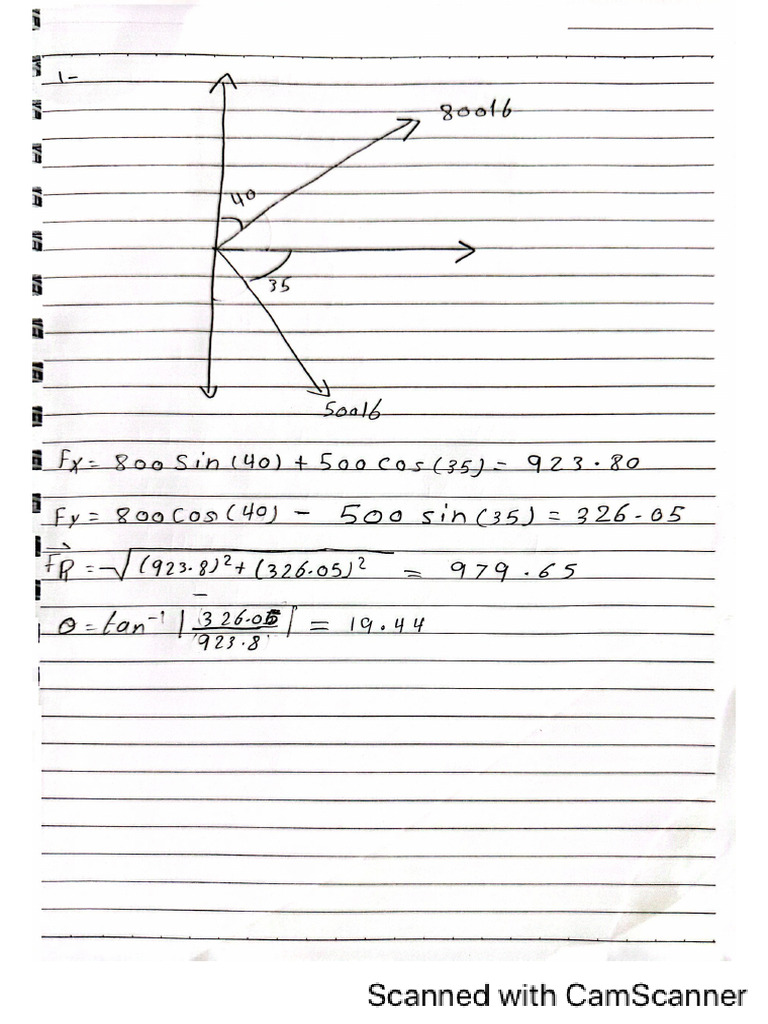 1-
800lb
40
35
500lb
Fx = 800 Sin (40) + 500 cos (35) = 923.80
Fy = 800 Cos (40) - 500 sin (35) = 326.05
FR = √(923.8)² + (326.05)² = 979.65
θ = tan⁻¹ |326.05/923.8| = 19.44
Scanned with CamScanner